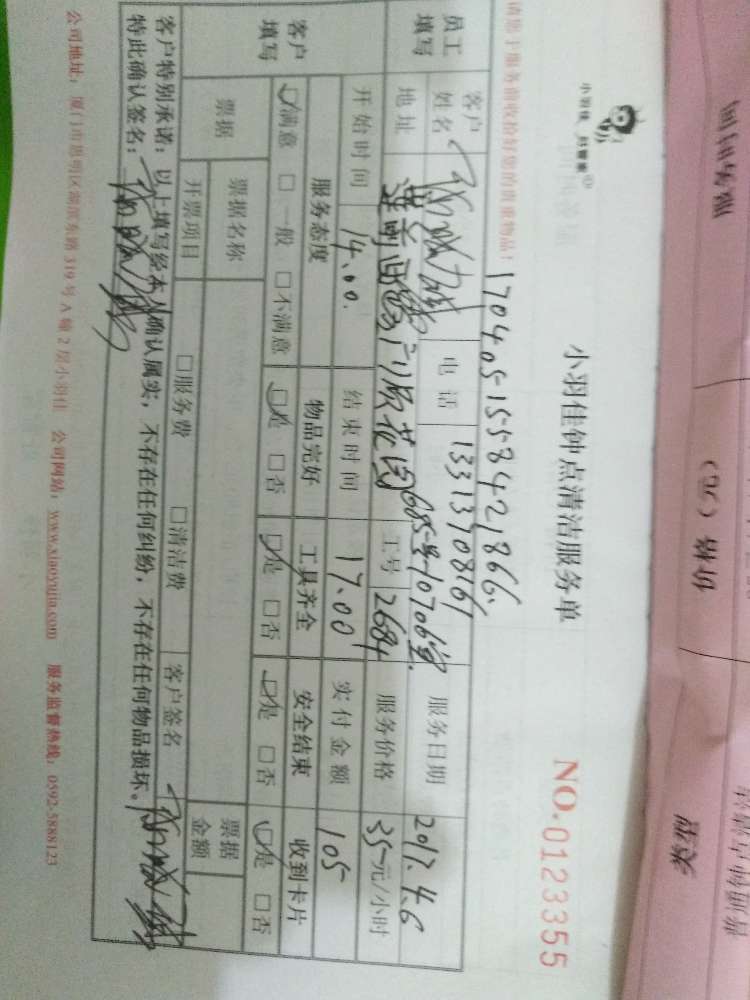 小羽佳 好管家®
小羽佳钟点清洁服务单
NO.0123355
请您于服务前收拾好您的贵重物品!
17040515584218661
员工填写
客户姓名
电话 13313710816
服务日期 2017.4.6
地址
605号
工号 2684
服务价格 35元/小时
客户填写
开始时间 14.00.
结束时间 17.00
实付金额 105
服务态度 物品完好 工具齐全 安全结束 收到卡片
☑满意 □一般 □不满意 ☑是 □否 ☑是 □否 ☑是 □否 ☑是 □否
票据
票据名称
票据金额
开票项目 □服务费 □清洁费 客户签名
客户特别承诺:以上填写经本人确认属实,不存在任何纠纷,不存在任何物品损坏。
特此确认签名:
公司地址:厦门市思明区湖滨东路319号A幢2层小羽佳 公司网站:www.xiaoyujia.com 服务监督热线:0592-5888123
价格(元)
类型